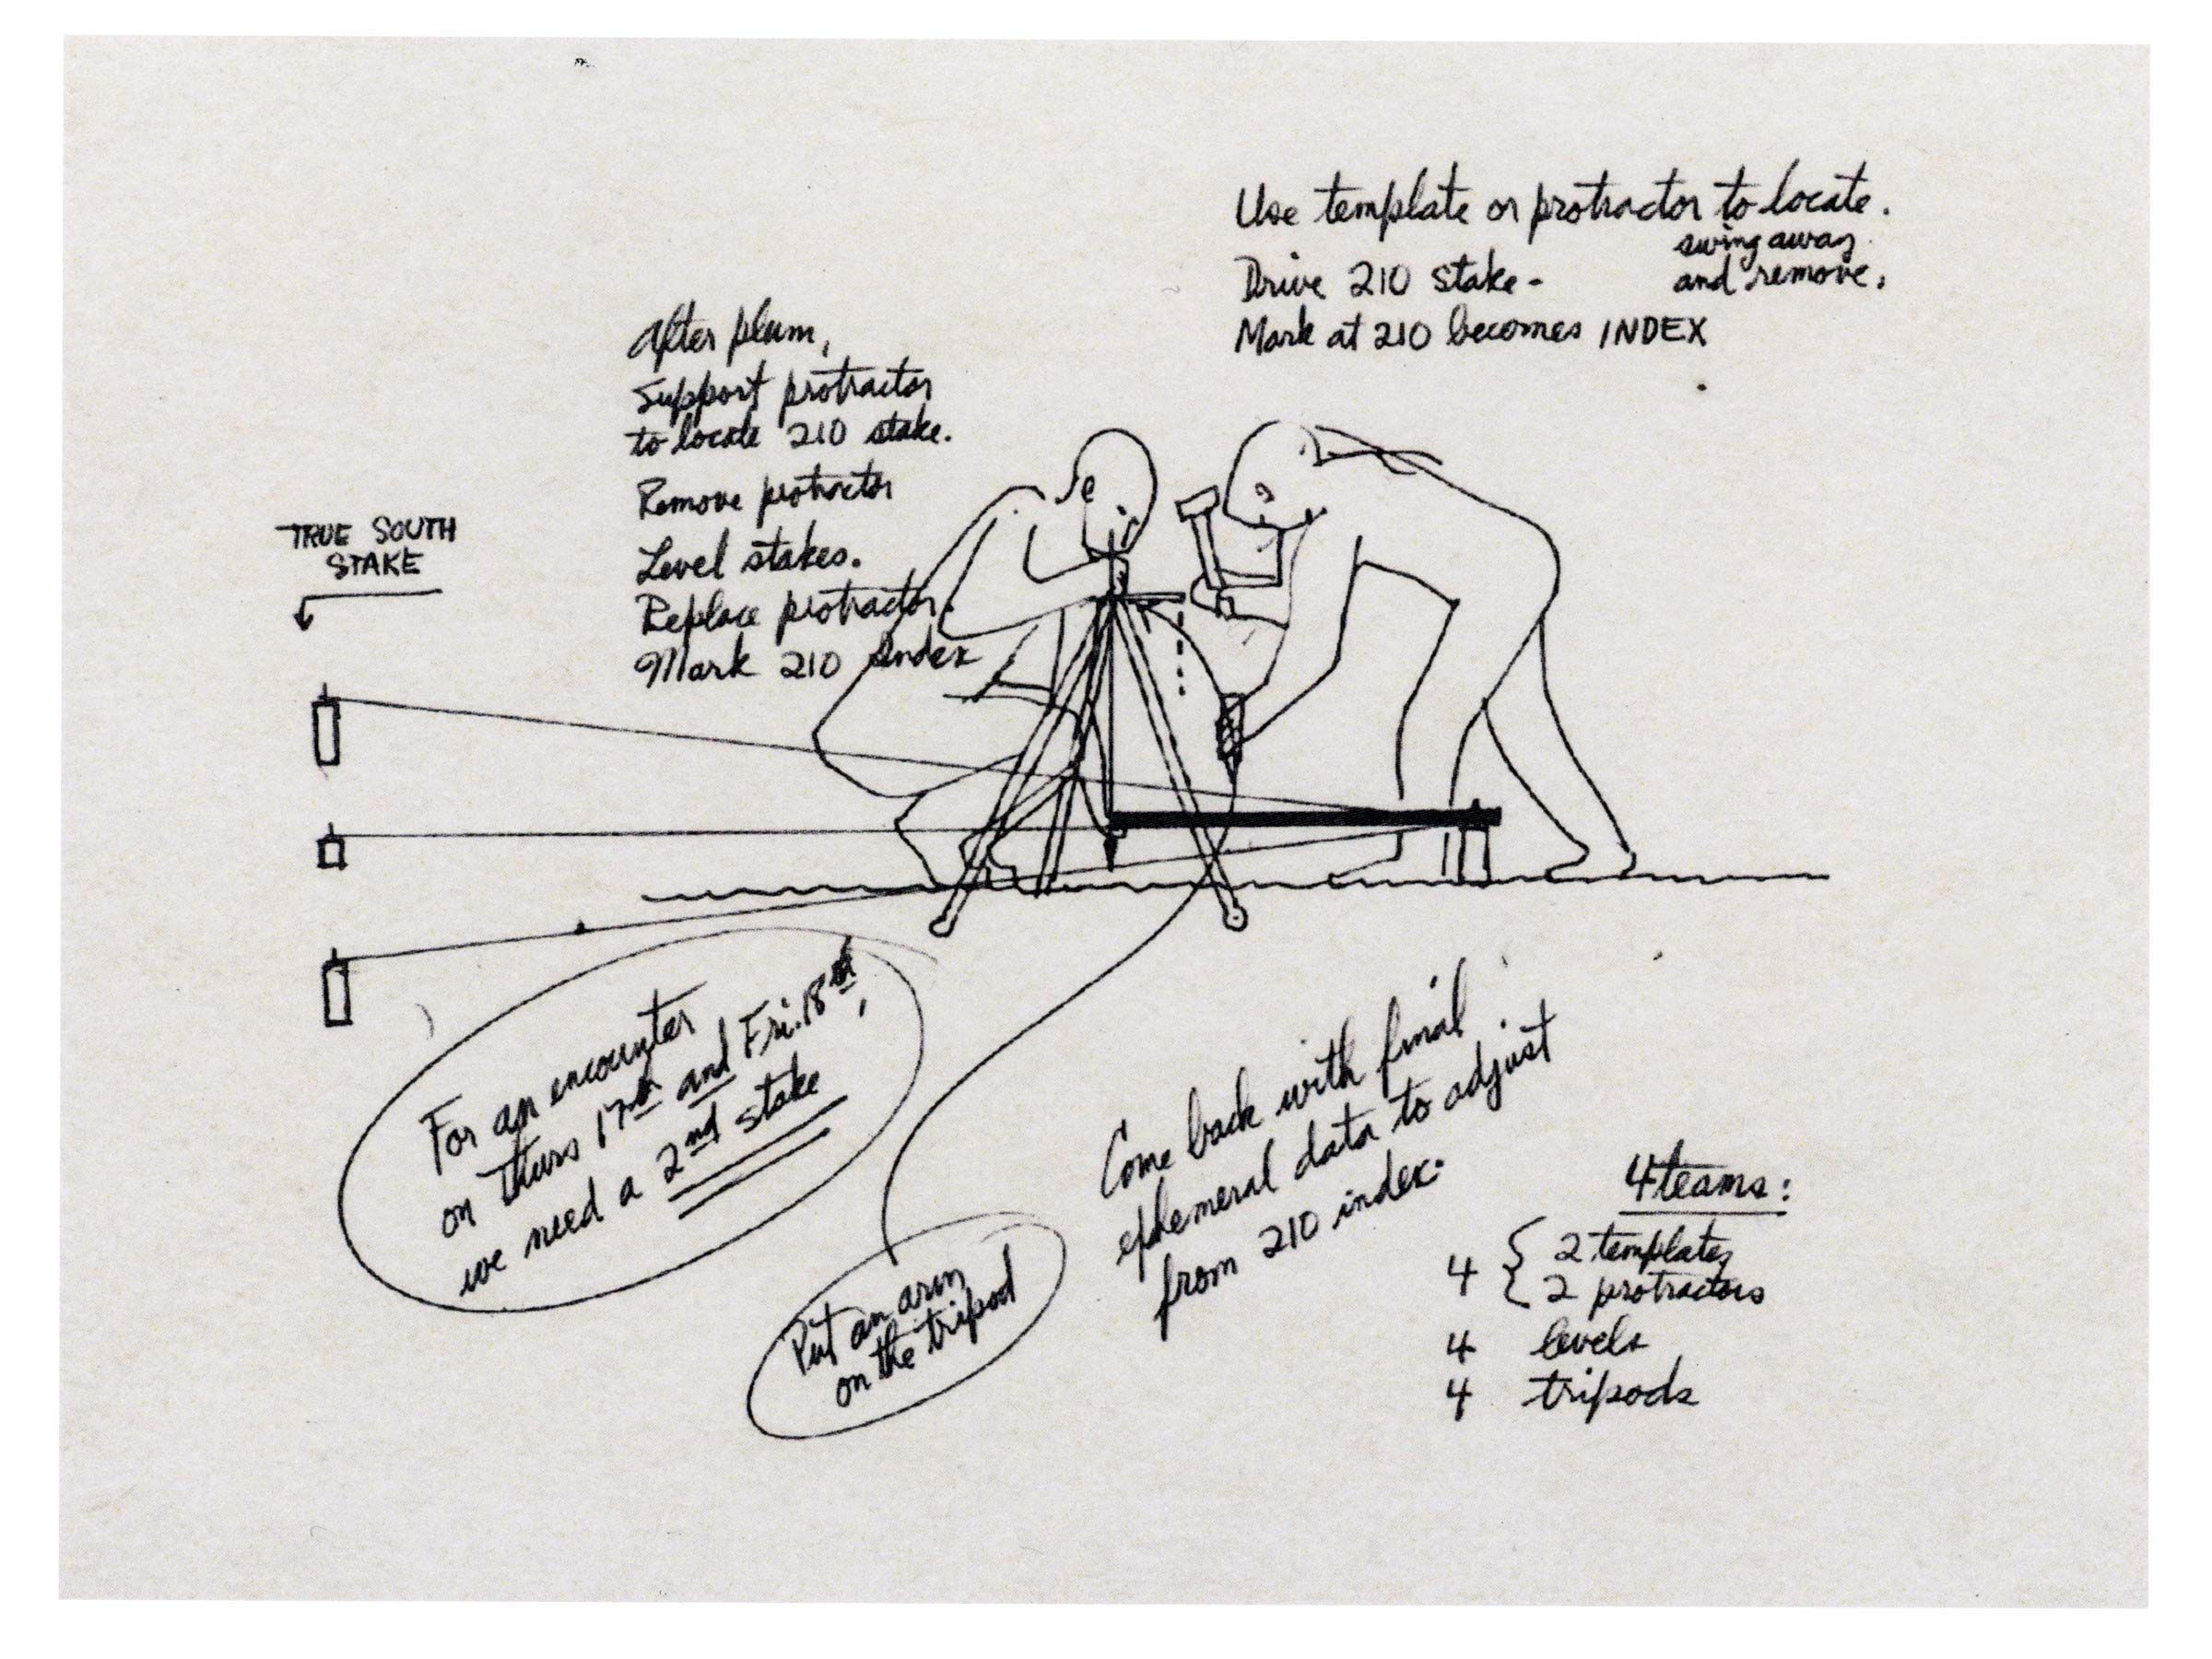 Use template or protractor to locate.
swing away
Drive 210 stake - and remove.
Mark at 210 becomes INDEX
After plum,
Support protractor
to locate 210 stake.
Remove protractor
Level stakes.
Replace protractor.
Mark 210 Index
TRUE SOUTH
STAKE
For an encounter
on Thurs 17th and Fri. 18th,
we need a 2nd stake
Put an arm
on the tripod
Come back with final
ephemeral data to adjust
from 210 index.
4 teams:
4 { 2 templates
2 protractors
4 levels
4 tripods